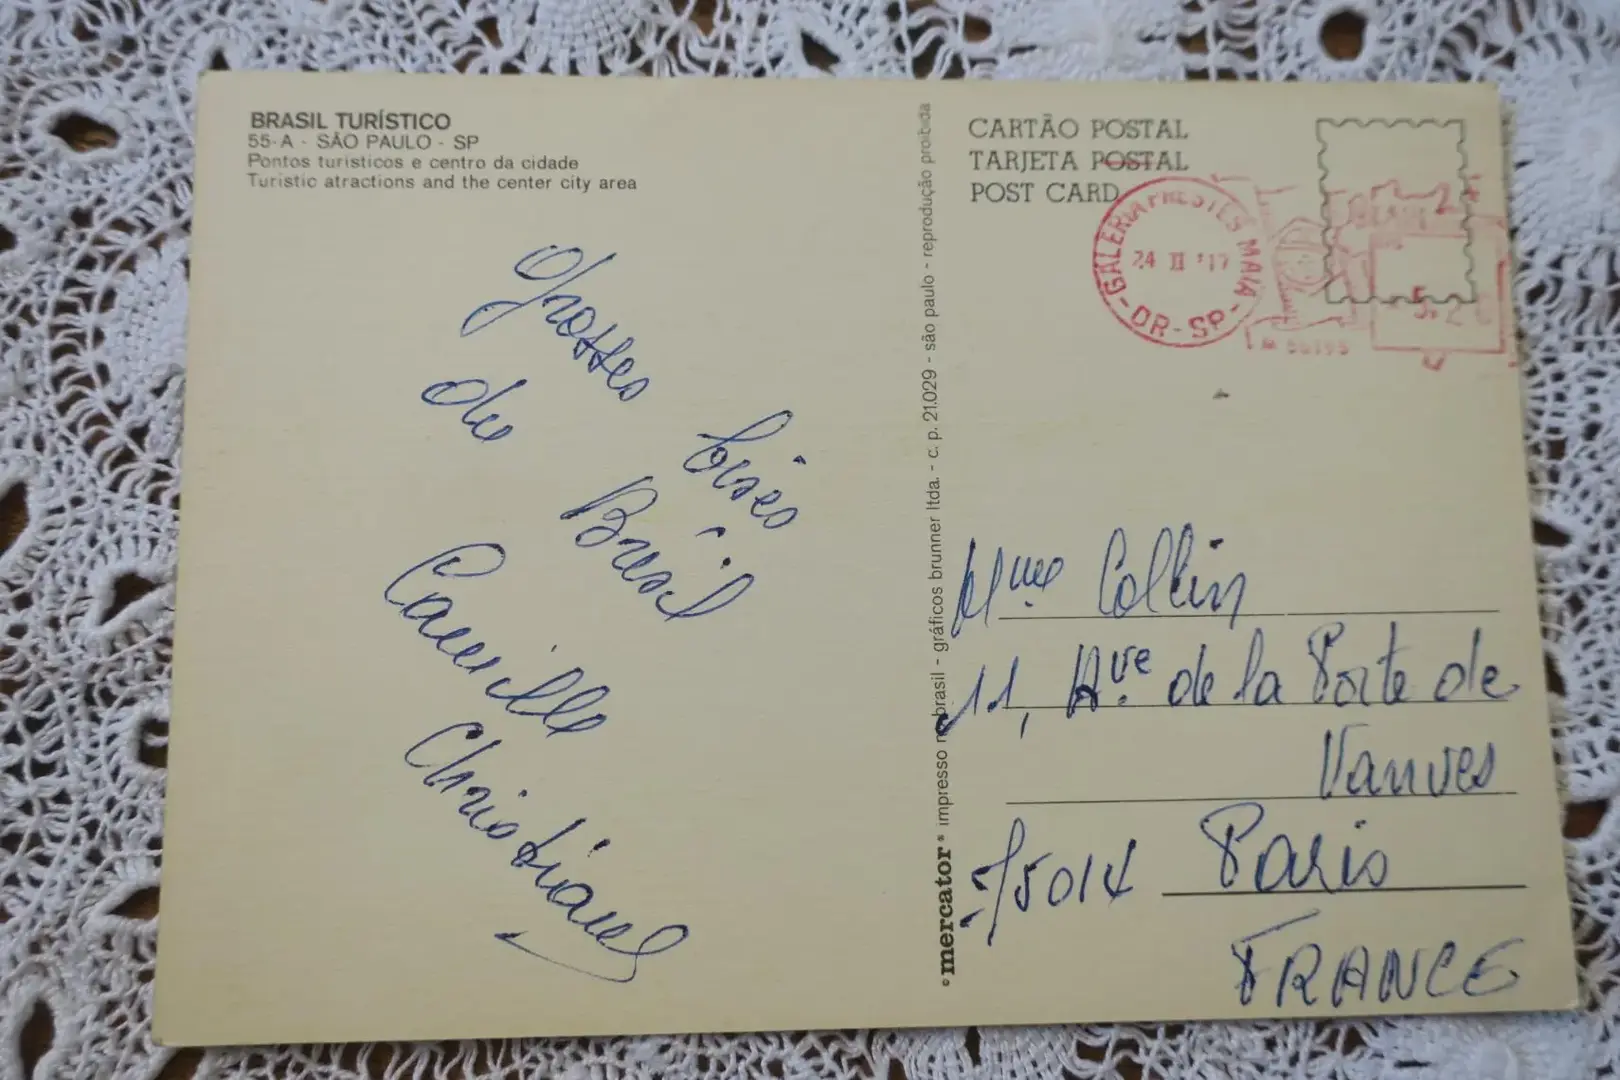 BRASIL TURÍSTICO
55-A - SÃO PAULO - SP
Pontos turísticos e centro da cidade
Turistic atractions and the center city area
Grosses bises
du Brésil
Camille
Christiane
mercator impresso no brasil - gráficos brunner ltda. - c. p. 21.029 - são paulo - reprodução proibida
CARTÃO POSTAL
TARJETA POSTAL
POST CARD
GALERIA PRESTES MAIA
24 II
DR - SP
Mme Collin
11, Ave de la Porte de
Vanves
75014 Paris
FRANCE